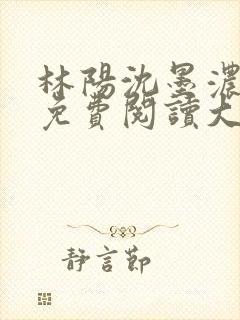 林陽沈墨濃
免費閱讀大
靜言節